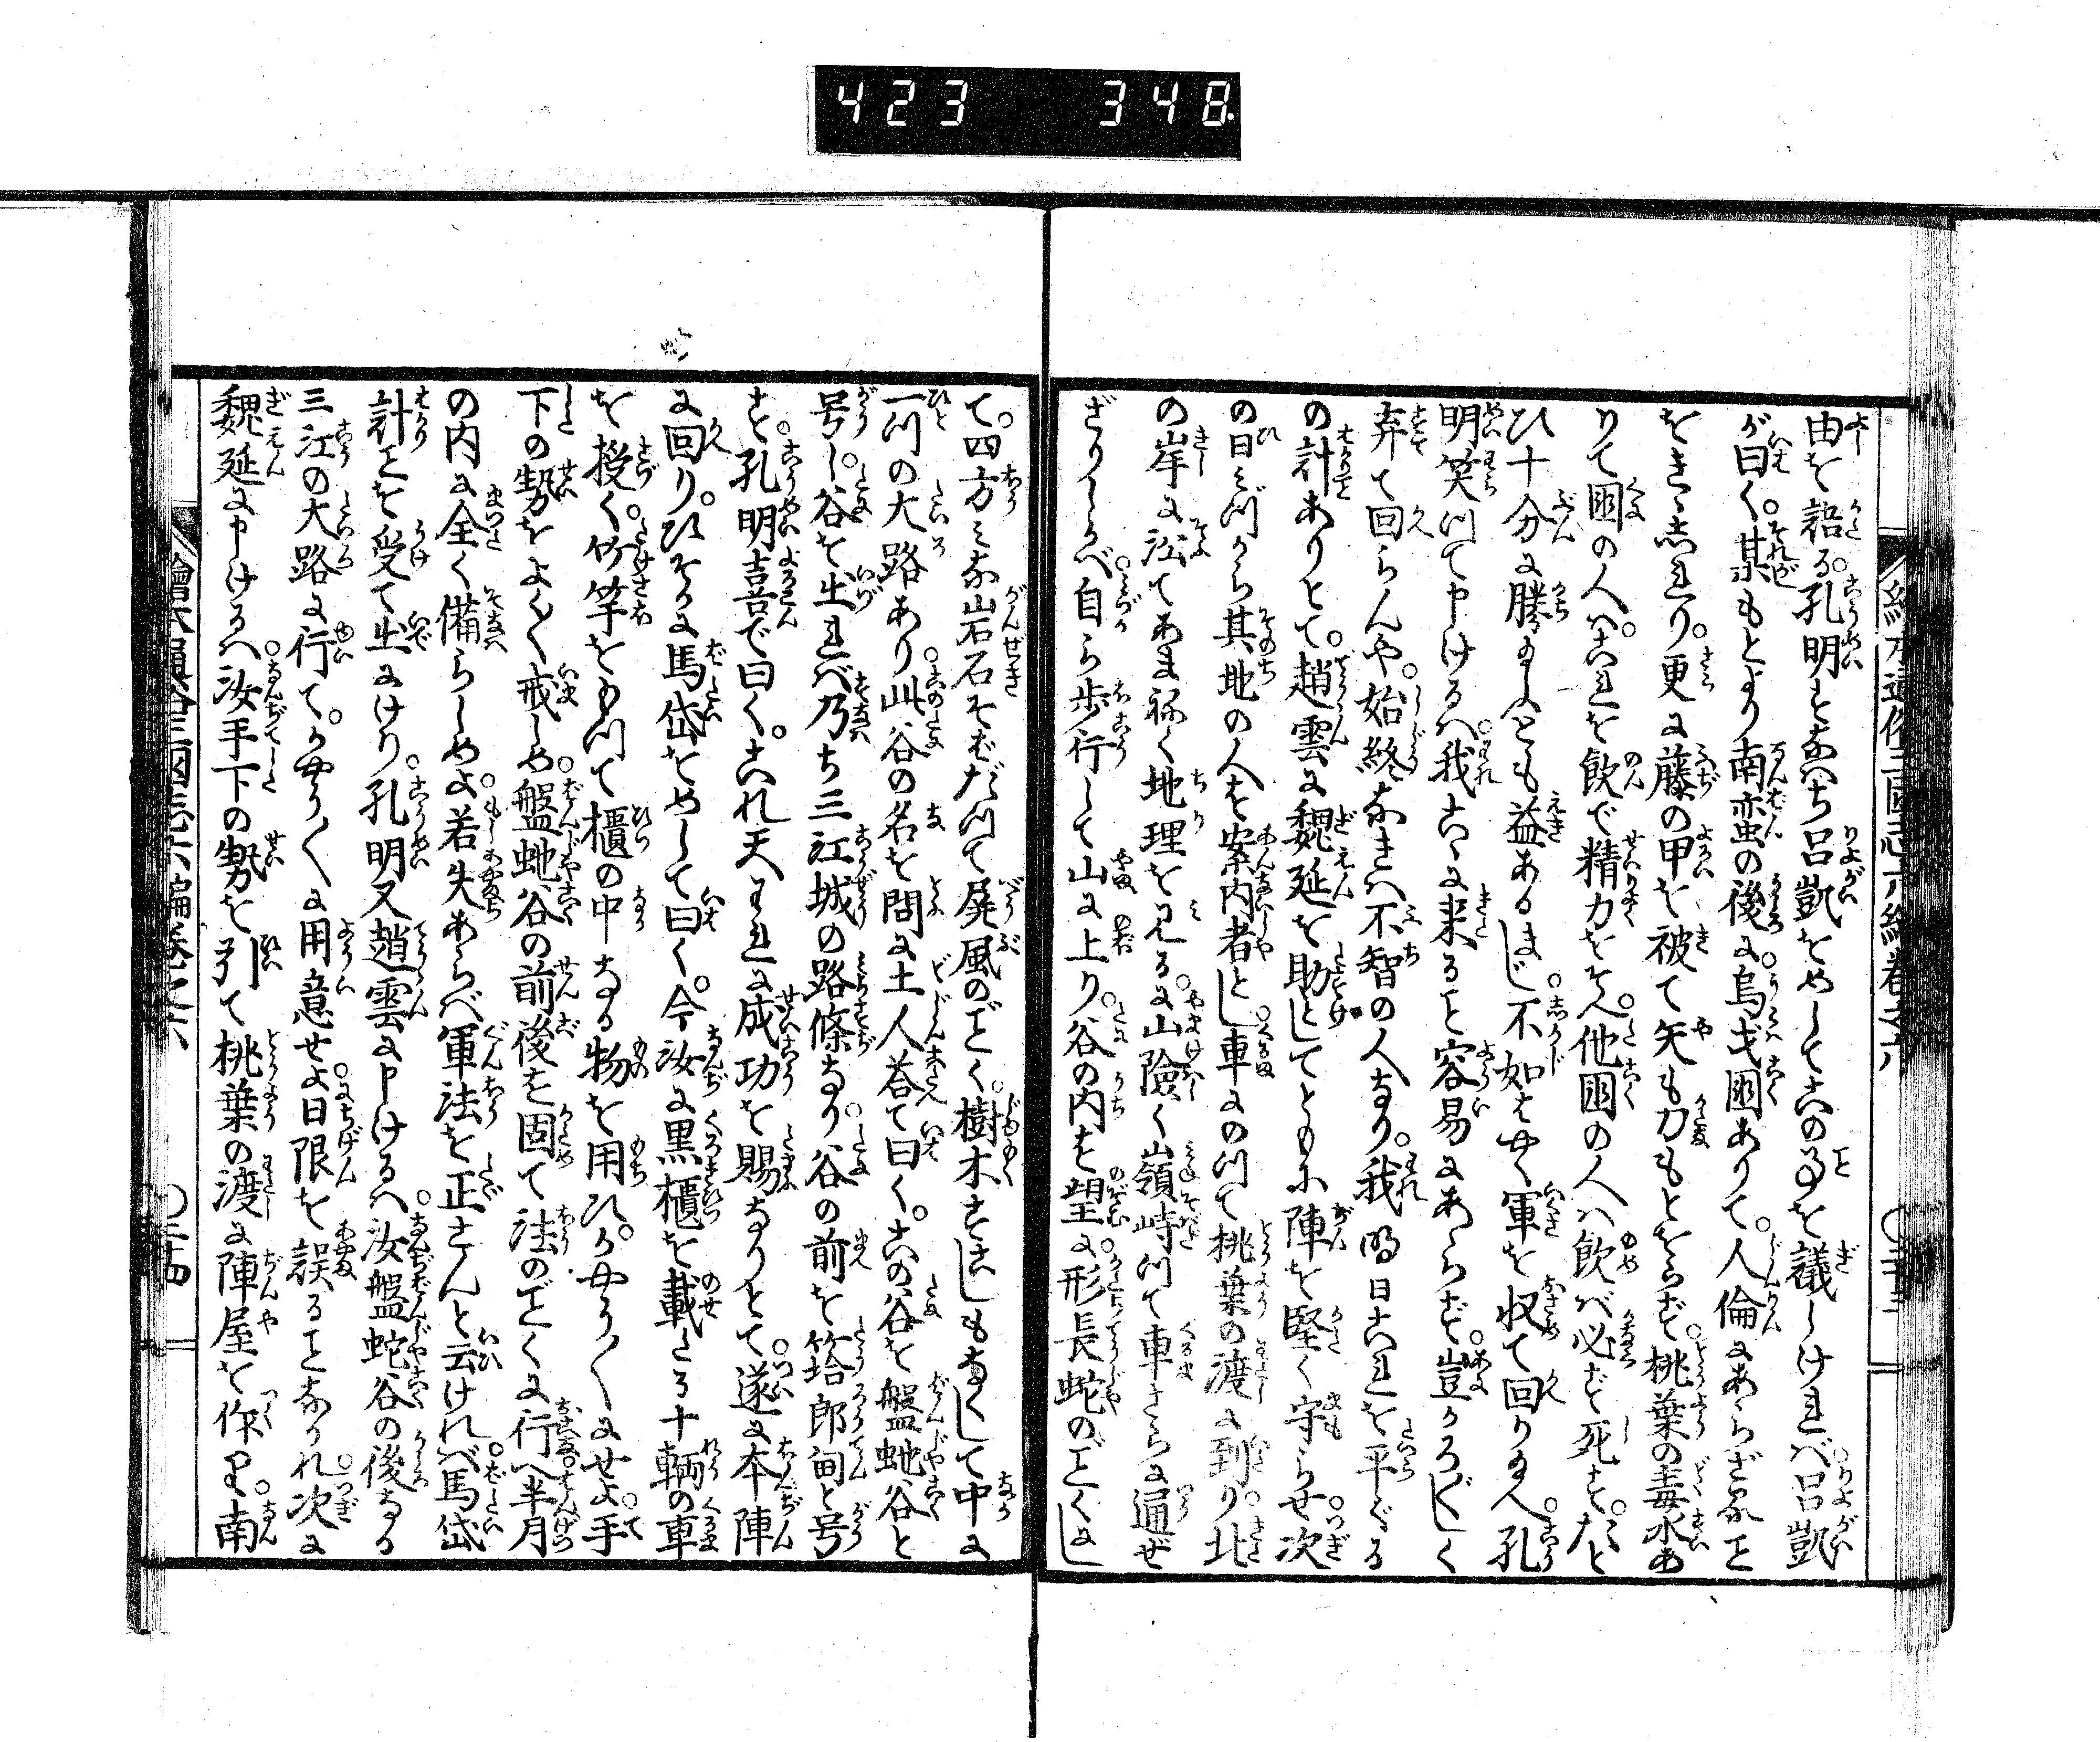 423 348
由を語る。孔明すなハち呂凱をめして此の事を議しけれバ。呂凱
が曰く。某もとより南蛮の後に。烏戈国ありて。人倫にあらざること
をきゝ志れり。更に藤の甲を被て矢も刀もとをらず。桃葉の毒水あ
りて国の人ハ。これを飲で精力をそへ。他国の人ハ飲バ必ず死す。たと
ひ十分に勝給ふとも益あるまじ。不如はやく軍を収て回り給へ。孔
明笑つて申けるハ。我こゝに来ること容易にあらず。豈かろ〴〵しく
弃て回らんや。始終なきハ不智の人なり。我明日これを平ぐる
の計ありとて。趙雲に魏延を助としてともに陣を堅く守らせ。次
の日みづから其地の人を案内者とし。車にのつて桃葉の渡に到り。北
の岸に沿てあまねく地理を見るに。山険く嶺峙つて車さらに通ぜ
ざりしかバ。自ら歩行して山に上り。谷の内を望に。形長蛇のごとくにし
て。四方みな山岩石そばだつて屏風のごとく。樹木すこしもなくして中に
一つの大路あり。此谷の名を問に土人荅て曰く。此谷を盤虵谷と
号し。谷を出れバ乃ち三江城の路條なり。谷の前を㙮郎甸と号
す。孔明喜で曰く。これ天われに成功を賜なりとて。遂に本陣
に回り。ひそかに馬岱をめして曰く。今汝に黒櫃を載たる十輌の車
を授く。竹竿をもつて櫃の中なる物を用ひ。かやう〳〵にせよ。手
下の勢をよく〳〵戒しめ。盤虵谷の前後を固て法のごとくに行へ。半月
の内に全く備らしめよ。若失あらバ軍法を正さんと云けれバ。馬岱
計ことを受て出にけり。孔明又趙雲に申けるハ。汝盤蛇谷の後なる
三江の大路に行て。かやう〳〵に用意せよ。日限を誤ることなかれ。次に
魏延に申けるハ。汝手下の勢を引て桃葉の渡に陣屋を作り。南